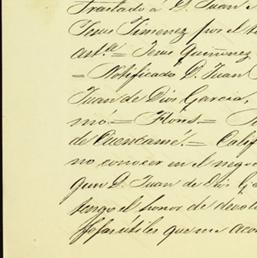 Traslado á D. Juan
Jesus Jimenez por el
art.º = Jesus Quiñonez
= Notificado D. Juan
Juan de Dios Garcia,
mó = Flórs. =
de Cuencamé. = Calif
no conocer en el nego
que D. Juan de Dios Ga
tengo el honor de devol
fojas útiles que me aco